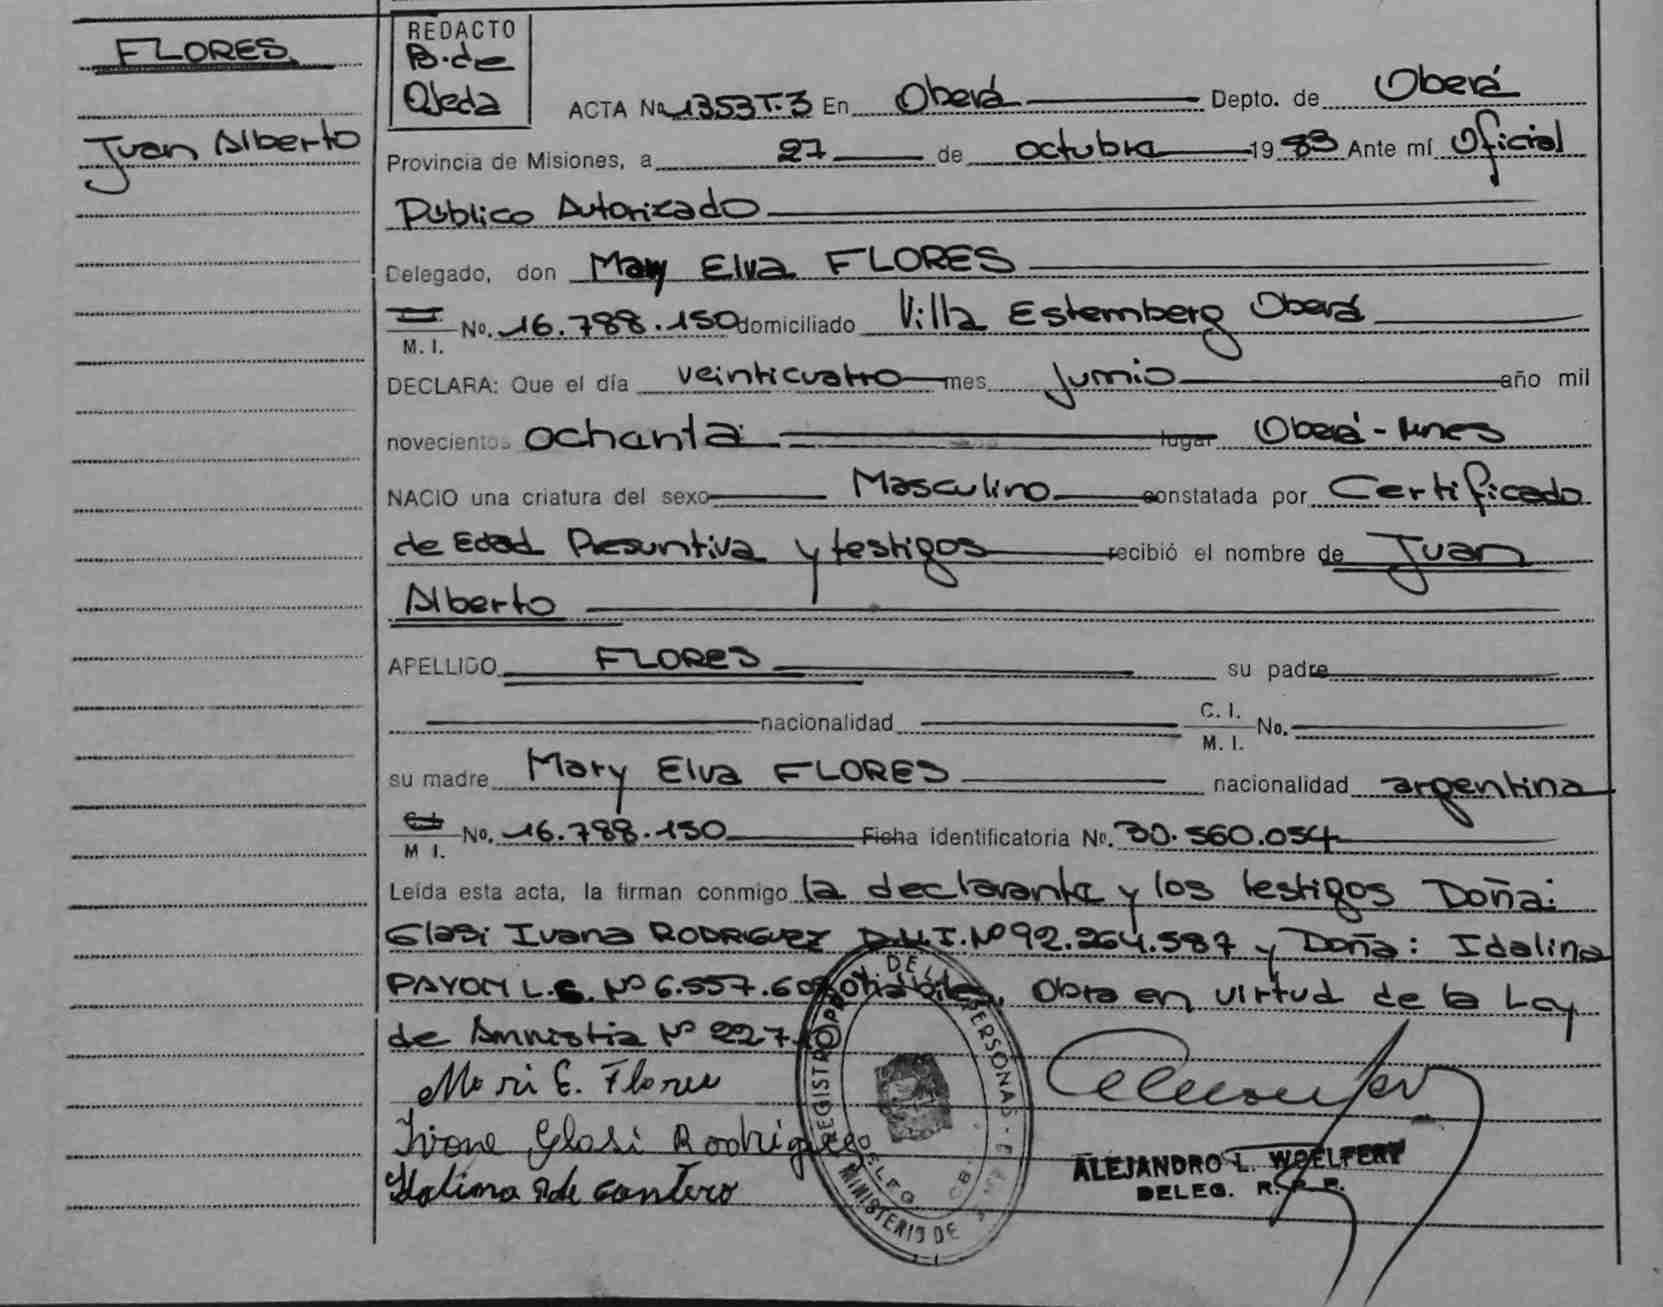 FLORES
Juan Alberto
REDACTO
B. de
Ojeda
ACTA Nº 1353 T.3 En Oberá Depto. de Oberá
Provincia de Misiones, a 27 de octubre 1983 Ante mí Oficial
Público Autorizado
Delegado, don Mary Elva FLORES
M. I. No. 16.788.150 domiciliado Villa Estemberg Oberá
DECLARA: Que el día veinticuatro mes Junio año mil
novecientos ochenta lugar Oberá - Mnes
NACIO una criatura del sexo Masculino constatada por Certificado
de Edad Presuntiva y testigos recibió el nombre de Juan
Alberto
APELLIDO FLORES su padre
nacionalidad C. I. M. I. No.
su madre Mary Elva FLORES nacionalidad argentina
M I. No. 16.788.150 Ficha identificatoria Nº. 30.560.054
Leída esta acta, la firman conmigo la declarante y los testigos Doña:
Glasi Ivana RODRIGUEZ D.N.I. Nº 92.264.587 y Doña: Idalina
PAYON L.C. Nº 6.557.60 hábiles. Obra en virtud de la Ley
de Amnistia Nº 227
Mari E. Flores
Ivone Glasi Rodriguez
Idalina P de Cantero
REGISTRO PROV. DE LAS PERSONAS
DELEG.
MINISTERIO DE
ALEJANDRO L. WOELFERT
DELEG. R. P. P.